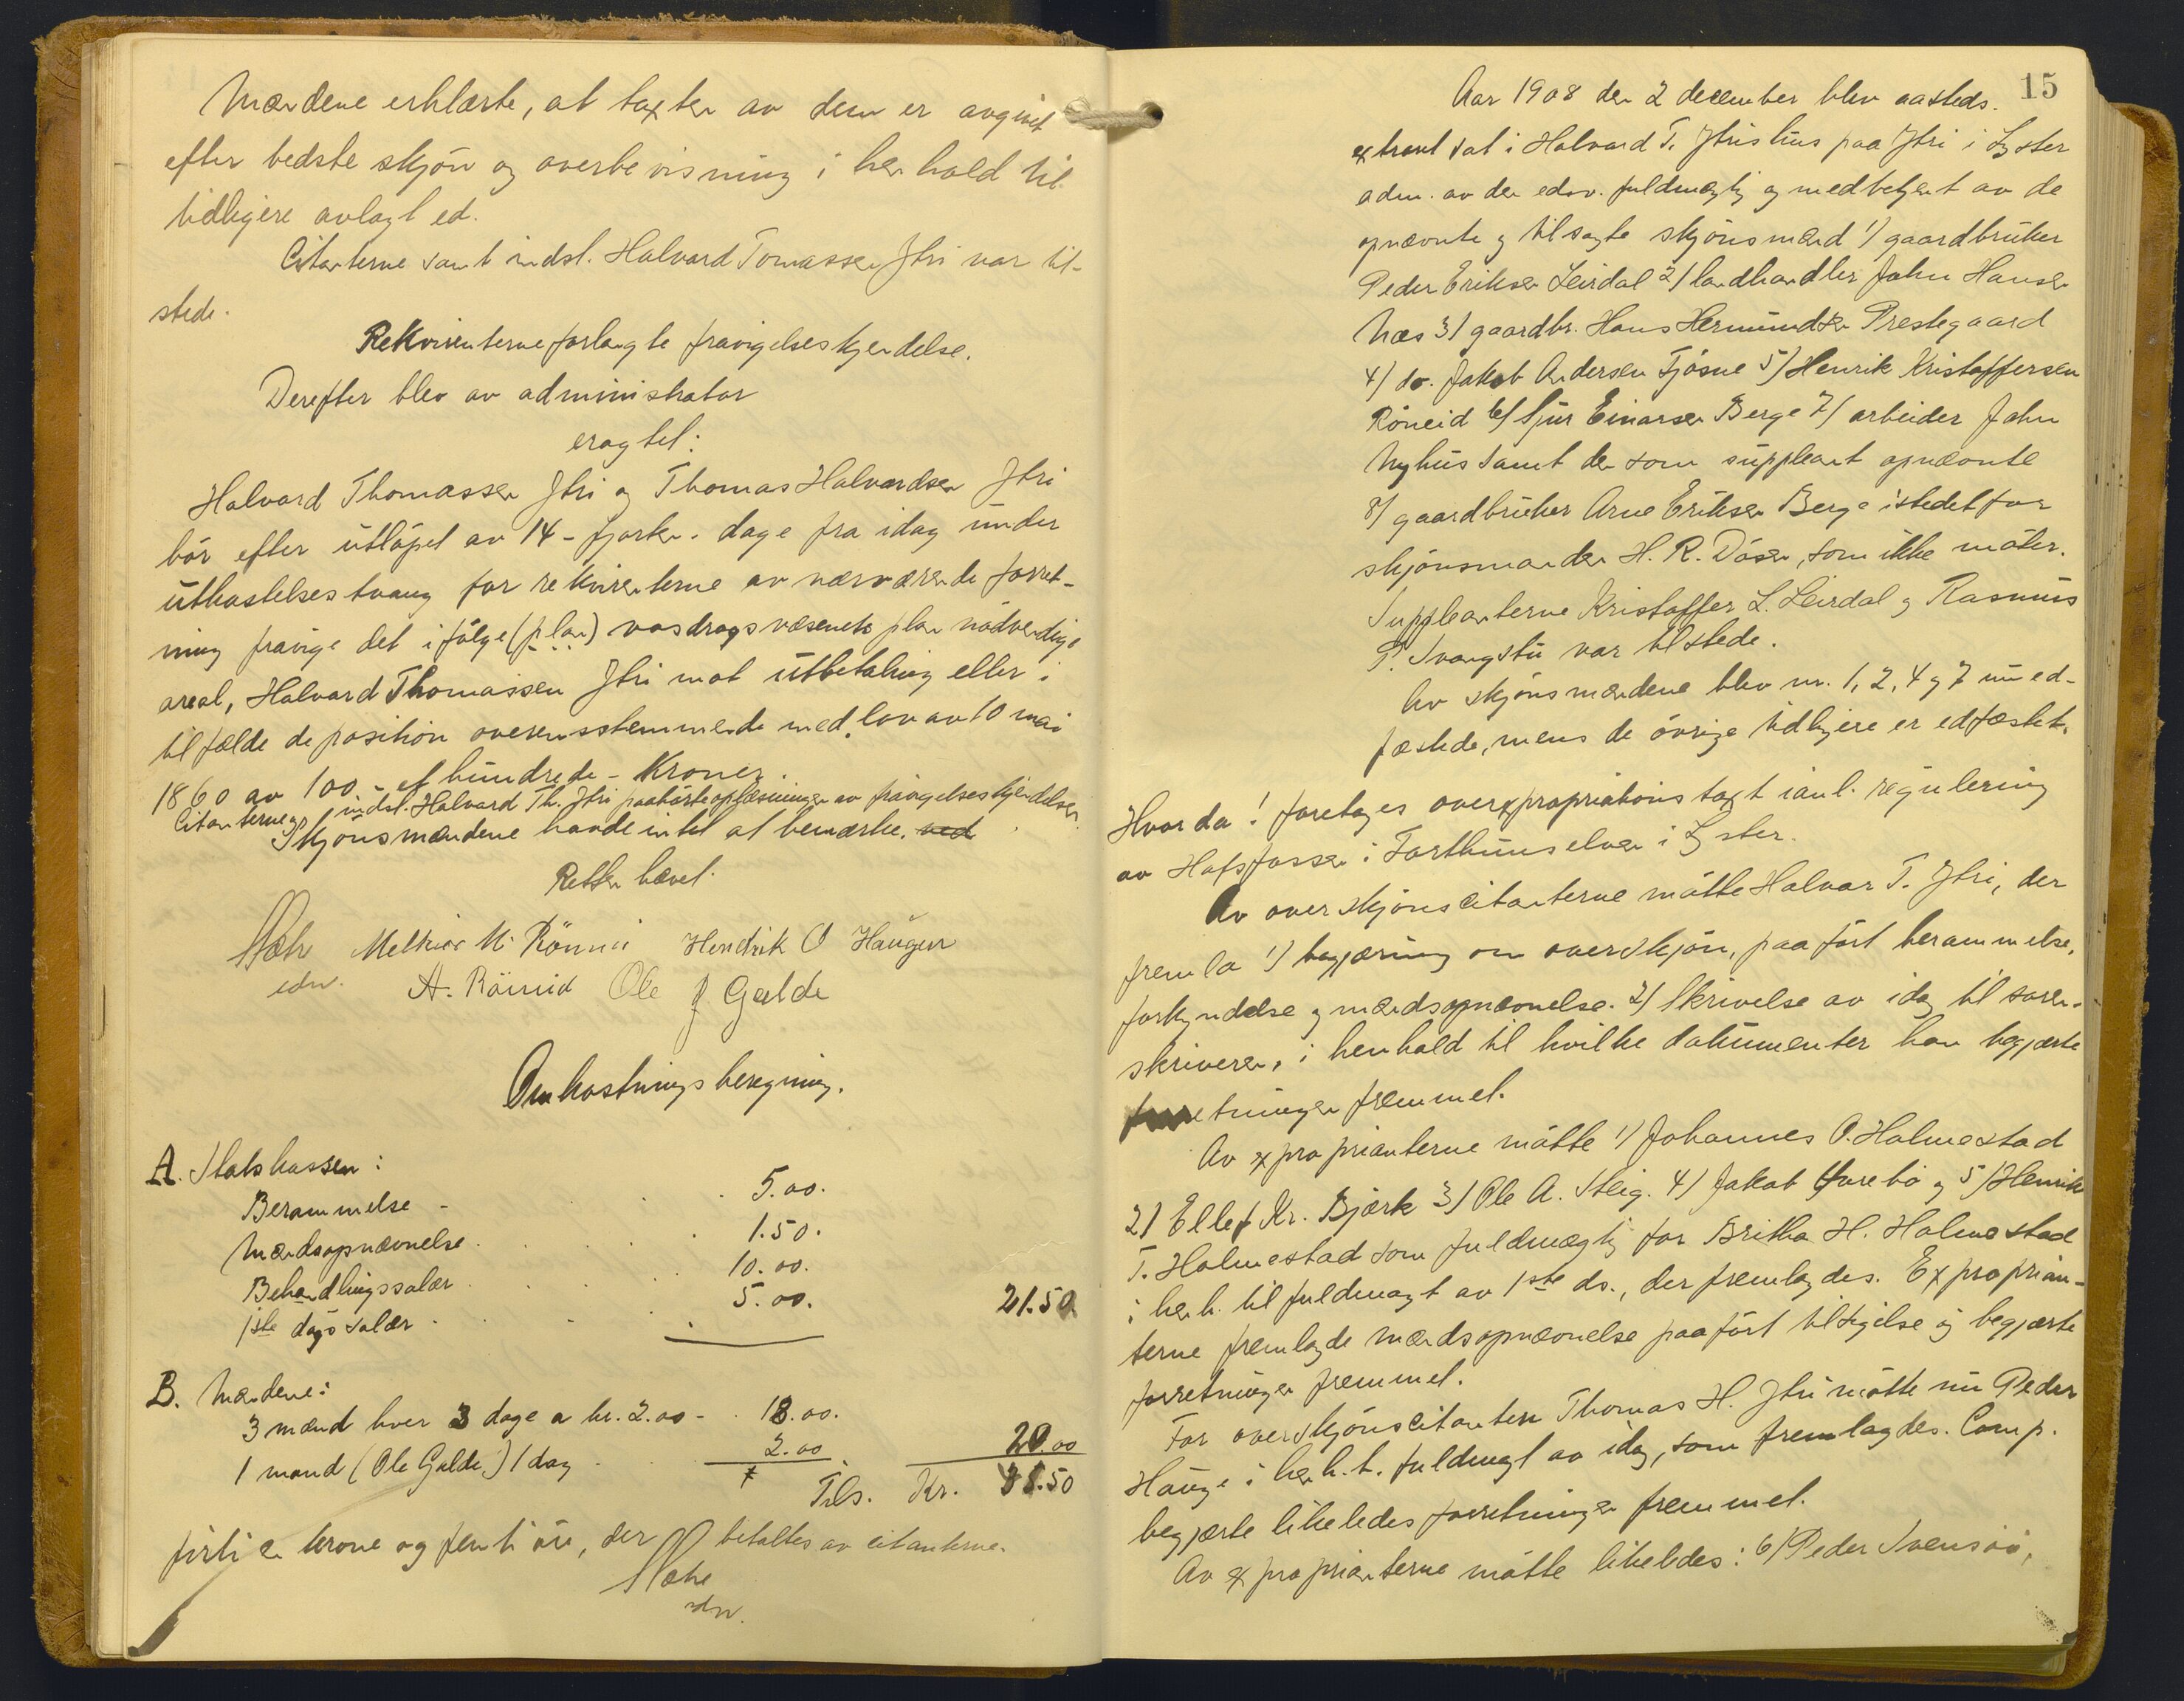 Mændene erklærte, at taxten av dem er avgivet
efter bedste skjøn og overbevisning i henhold til
tidligere avlagt ed.
Citanterne samt indst. Halvard Tomassen Ytri var til-
stede.
Rekvirenterne forlangte fravigelseskjendelse.
Derefter blev av administrator
eragtet:
Halvard Thomassen Ytri og Thomas Halvardsen Ytri
bør efter utløpet av 14 - fjorten - dage fra idag under
utkastelsestvang for rekvirenterne av nærværende forret-
ning fravige det ifølge (plan) vasdragsvæsenets plan nødvendige
areal, Halvard Thomassen Ytri mot utbetaling eller i
tilfælde deposition overensstemmende med lov av 10 mai
1860 av 100 - et hundrede - Kroner.
Citanterne og indst. Halvard Th. Ytri paahørte oplæsningen av fravigelseskjendelsen.
Skjønsmændene havde intet at bemærke. ved
Retten hævet.
Melkior M. Rönnei Hendrik O Haugen
edsv. A. Röneid Ole J Galde
Omkostningsberegning.
A. Statskassen:
Berammelse - 5.00.
Mændsopnævnelse. 1.50.
Behandlingssalær. 10.00.
1ste dags salær. 5.00. 21.50
B. Mændene:
3 mænd hver 3 dage a kr. 2.00 - 18.00.
1 mand (Ole Galde) 1 dag 2.00 20.00
Tils. Kr. 41.50
firti en krone og femti øre, der betaltes av citanterne.
edsv.
15
Aar 1908 den 2 december blev aasteds.
extraret sat i Halvard T. Ytris hus paa Ytri i Lyster
adm. av den edsv. fuldmægtig og medbetjent av de
opnævnte og tilsagte skjønsmænd 1) gaardbruker
Peder Eriksen Leirdal 2) landhandler John Hansen
Næs 3) gaardbr. Hans Hermundsen Prestegaard
4) do. Jakob Andersen Fjøsne 5) Henrik Kristoffersen
Röneid 6) Sjur Einarsen Berge 7) arbeider John
Nyhus samt den som suppleant opnævnte
8) gaardbruker Arne Eriksen Berge istedetfor
skjønsmanden H. R. Døsen, som ikke møter.
Suppleanterne Kristoffer L. Leirdal og Rasmus
P. Svangstu var tilstede.
Av skjønsmændene blev nr. 1, 2, 4 og 7 nu ed-
fæstede, mens de øvrige tidligere er edfæstet.
Hvorda! foretoges overexpropriationstaxt i anl. regulering
av Hafsfossen i Fortunselven i Lyster.
Av overskjønscitanterne møtte Halvar T. Ytri, der
fremla 1) begjæring om overskjøn, paaført berammelse,
forkyndelse og mændsopnævnelse. 2) Skrivelse av idag til soren-
skriveren, i henhold til hvilke dokumenter han begjærte
forretningen fremmet.
Av expropprianterne møtte 1) Johannes O. Holmestad
2) Ellef Kr. Bjørk 3) Ole A. Steig. 4) Jakob Yurebø og 5) Henrik
T. Holmestad som fuldmægtig for Britha H. Holmestad
i henh. til fuldmagt av 1ste ds., der fremlagdes. Expropprian-
terne fremlagde mændsopnævnelse paaført tilsigelse og begjærte
forretningen fremmet.
For overskjønscitanten Thomas H. Ytri møtte nu Peder
Hauge i henh. t. fuldmagt av idag, som fremlagdes. Comp.
begjærte likeledes forretningen fremmet.
Av expropprianterne møtte likeledes: 6) Peder Svensøi,